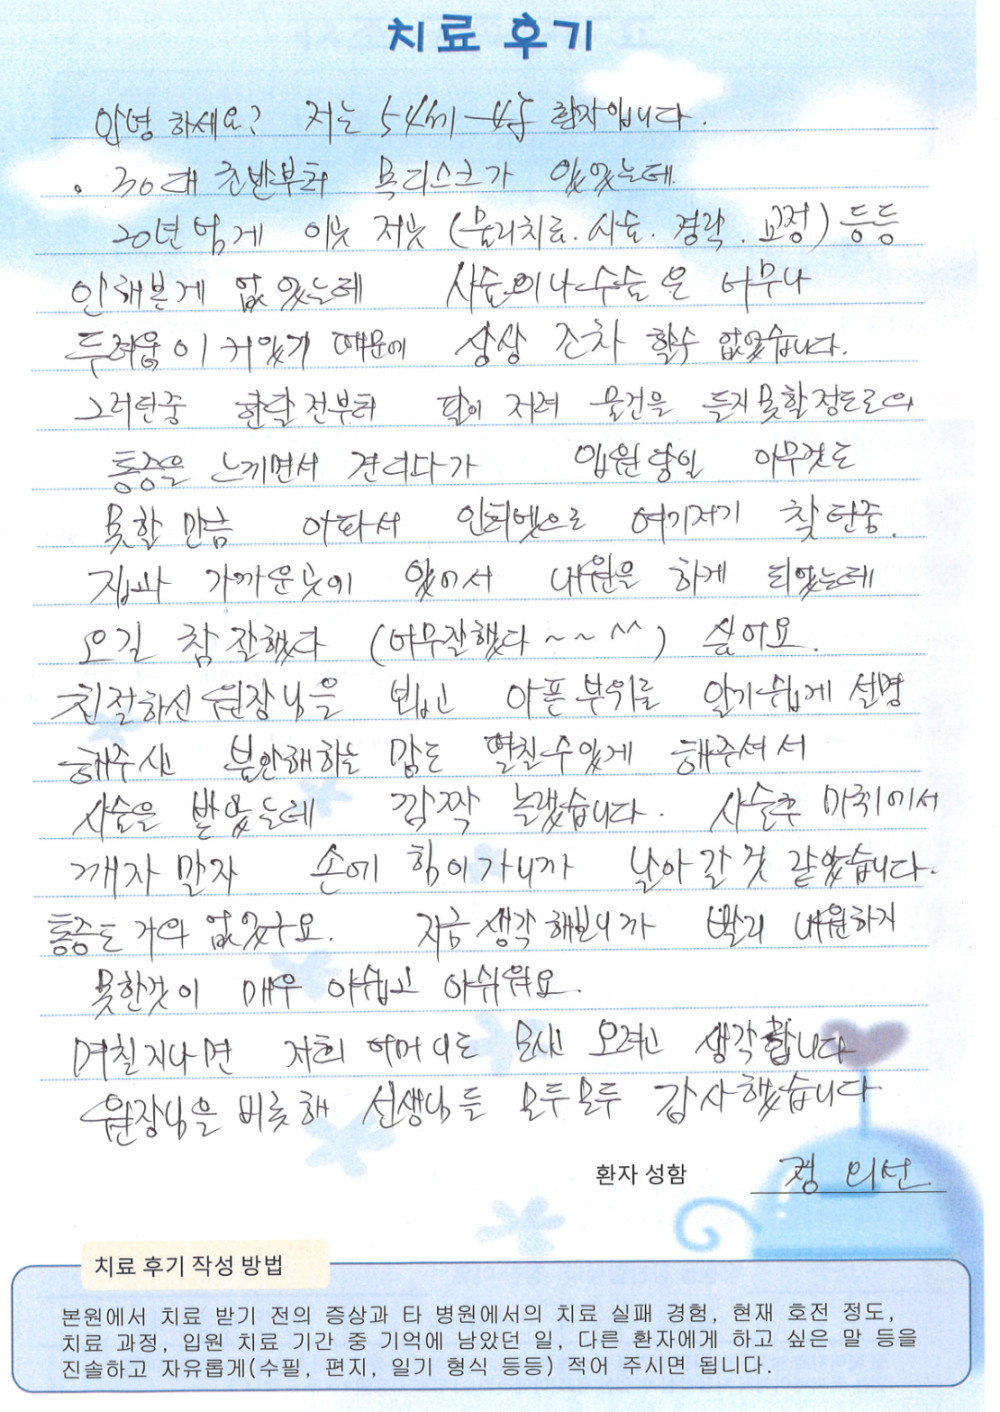 치료 후기
안녕 하세요? 저는 54세 여 환자입니다.
. 30대 초반부터 목디스크가 있었는데
20년 넘게 이곳 저곳 (물리치료. 시술. 경락. 교정) 등등
안해본게 없었는데 시술이나 수술은 너무나
두려움이 커있기 때문에 상상 조차 할수 없었습니다.
그러던중 한달전부터 팔이 저려 물건을 들지 못할정도로의
통증을 느끼면서 견디다가 입원당일 아무것도
못할 만큼 아파서 인터넷으로 여기저기 찾던중.
집과 가까운곳이 있어서 내원을 하게 되었는데
오길 참 잘했다 (너무잘했다 ~ ~ ^^) 싶어요.
친절하신 원장님을 뵙고 아픈부위를 알기쉽게 설명
해주시고 불안해하는 맘도 떨칠수있게 해주셔서
시술을 받았는데 깜짝 놀랬습니다. 시술후 마취에서
깨자 말자 손에 힘이가니까 날아갈것 같았습니다.
통증도 거의 없었구요. 지금 생각해보니까 빨리 내원하지
못한것이 매우 아쉽고 아쉬워요.
며칠지나면 저희 어머니도 모시고 오려고 생각합니다
원장님을 비롯해 선생님들 모두모두 감사했습니다
환자 성함 정 의선
치료 후기 작성 방법
본원에서 치료 받기 전의 증상과 타 병원에서의 치료 실패 경험, 현재 호전 정도,
치료 과정, 입원 치료 기간 중 기억에 남았던 일, 다른 환자에게 하고 싶은 말 등을
진솔하고 자유롭게(수필, 편지, 일기 형식 등등) 적어 주시면 됩니다.